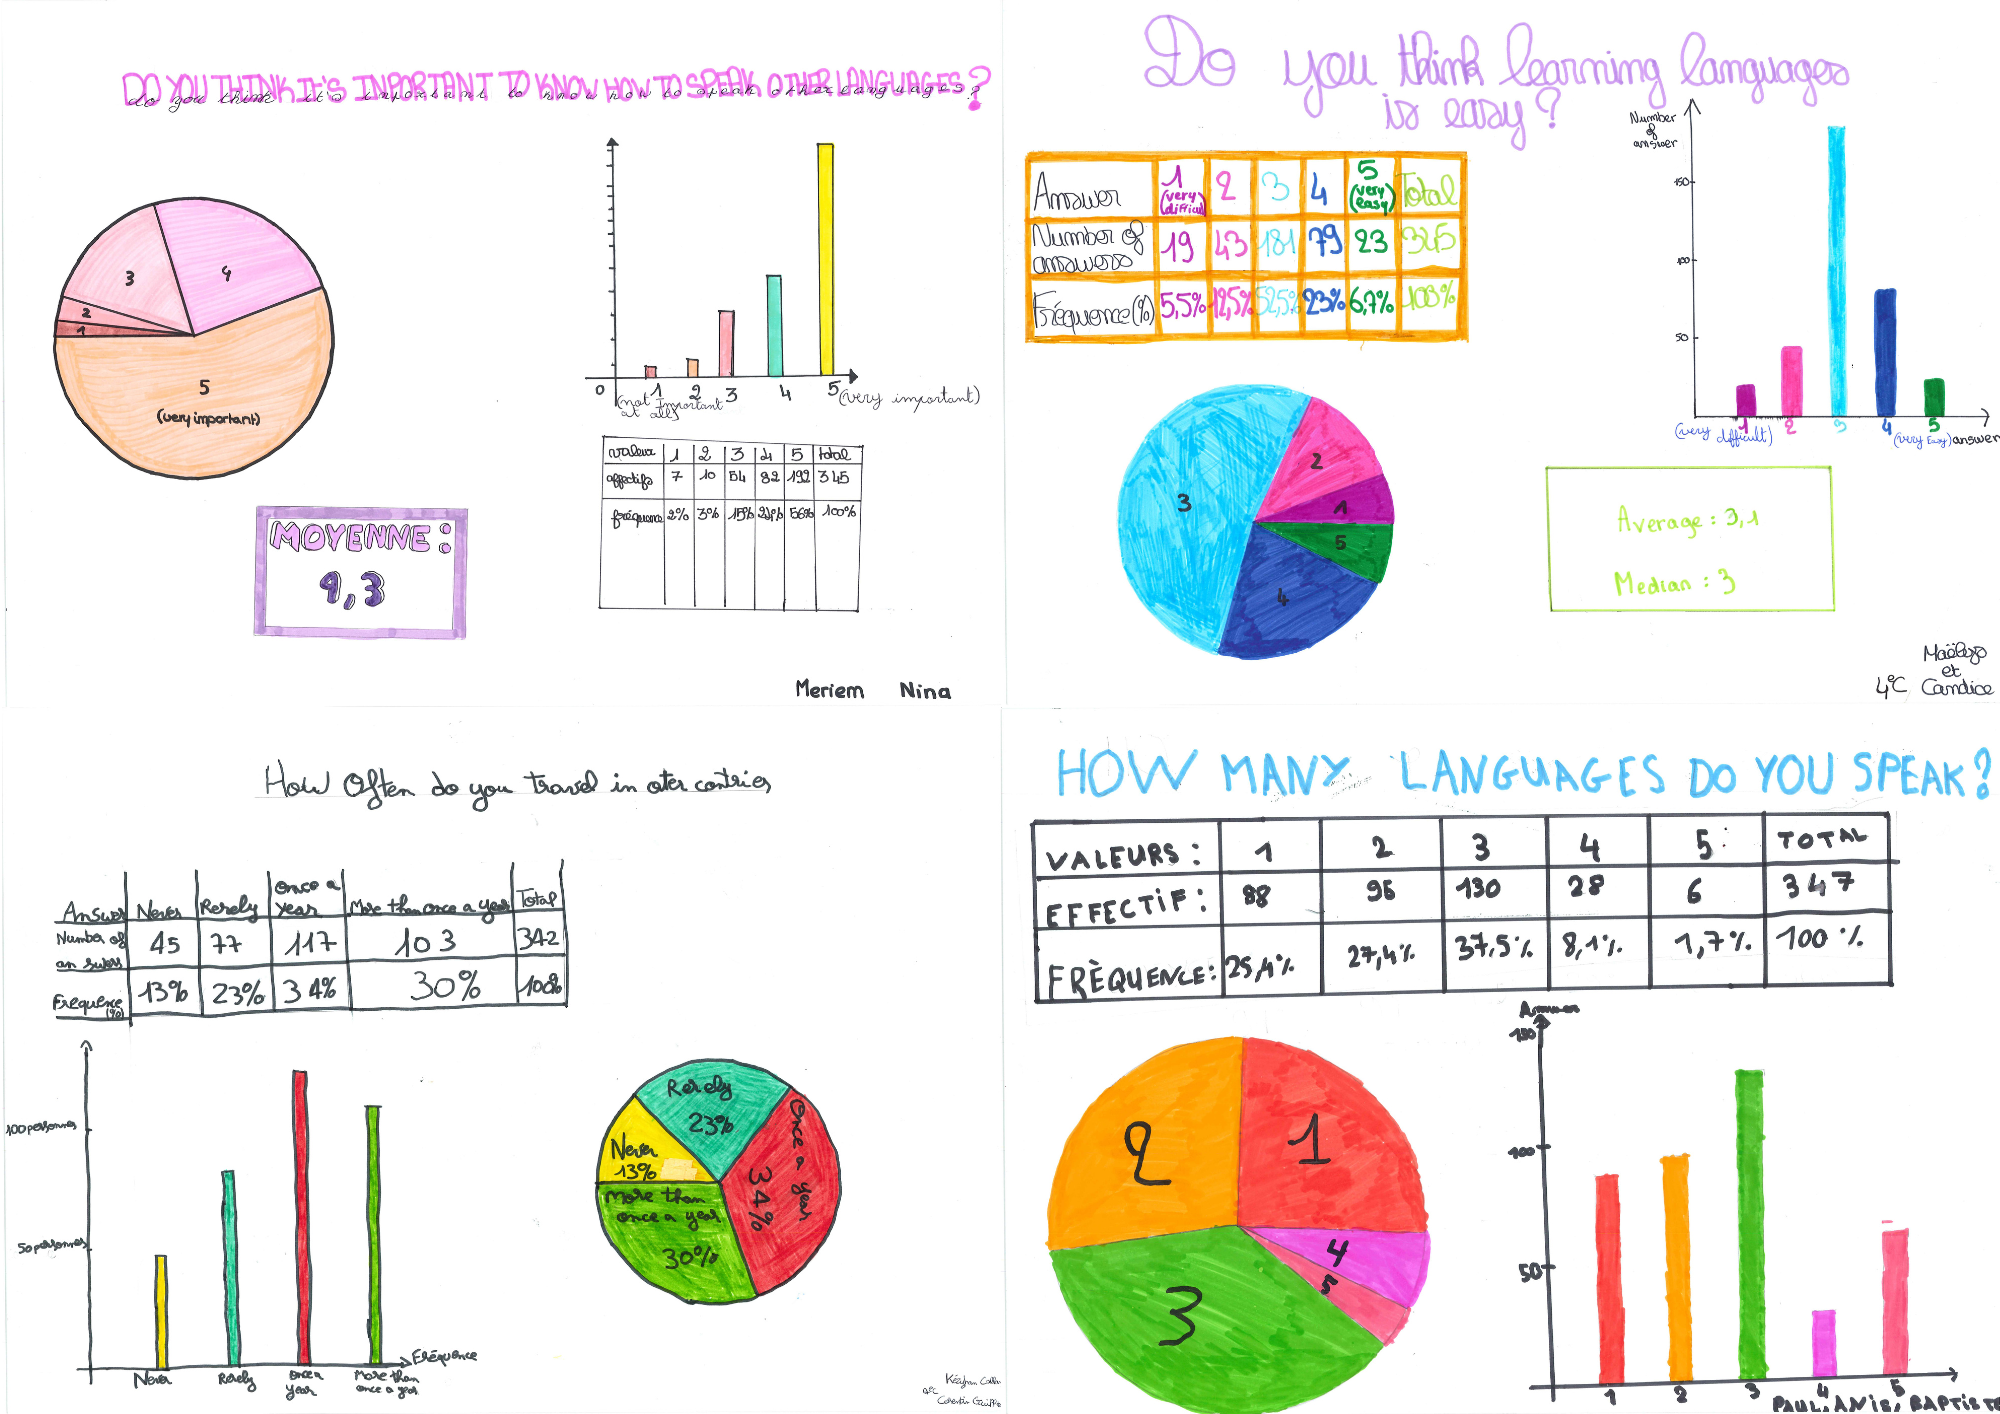 DO YOU THINK IT'S INPORTANT TO KNOW HOW TO SPEAK OTHER LANGUAGES?
do you think it's inportant to know how to speak other languages?
3
4
2
1
5
(very important)
0
1
2
3
4
5 (very important)
(not Important
at all)
valeur 1 2 3 4 5 total
affectifs 7 10 54 82 192 345
fréquence 2% 3% 15% 24% 56% 100%
MOYENNE:
4,3
Meriem Nina
Do you think learning languages
is easy?
Answer 1 (very difficult) 2 3 4 5 (very easy) Total
Number of answers 19 43 181 79 23 345
Fréquence (%) 5,5% 12,5% 52,5% 23% 6,7% 100%
Number
of
answer
150
100
50
1 2 3 4 5
(very difficult) (very Easy) answer
3
2
1
5
4
Average : 3,1
Median : 3
Maëlys
et
4°C Candice
How Often do you travel in oter contries
Answer Never Rerely Once a year More than once a year Total
Number of answers 45 77 117 103 342
Frequence (%) 13% 23% 34% 30% 100%
100 personnes
50 personnes
Never Rerely Once a year More than once a year
Fréquence
Rerely
23%
Never
13%
Once a year
34%
More than
once a year
30%
4°C
HOW MANY LANGUAGES DO YOU SPEAK?
VALEURS : 1 2 3 4 5 : TOTAL
EFFECTIF : 88 95 130 28 6 347
FRÈQUENCE : 25,4% 27,4% 37,5% 8,1% 1,7% 100 %
2
1
4
5
3
Answer
150
100
50
1 2 3 4 5
PAUL, ANIS, BAPTISTE